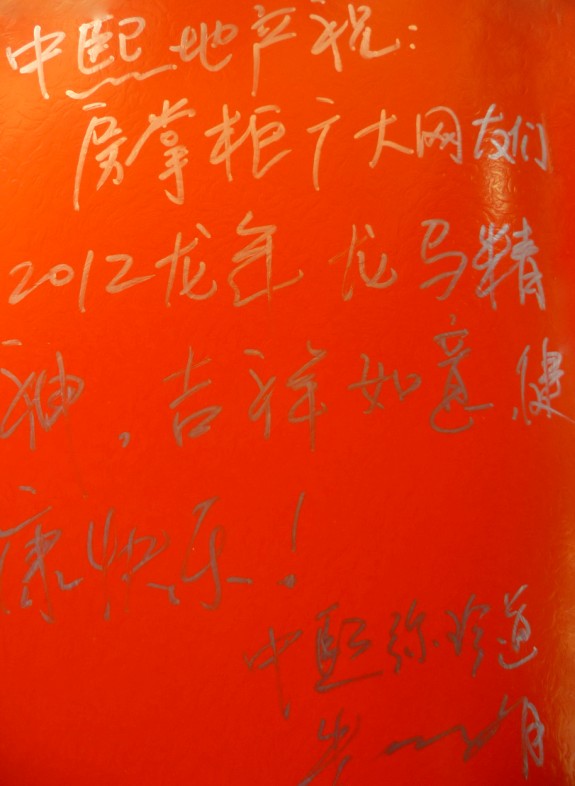 中熙地产祝：
房掌柜广大网友们
2012龙年 龙马精
神，吉祥如意，健
康快乐！
中熙弥珍道